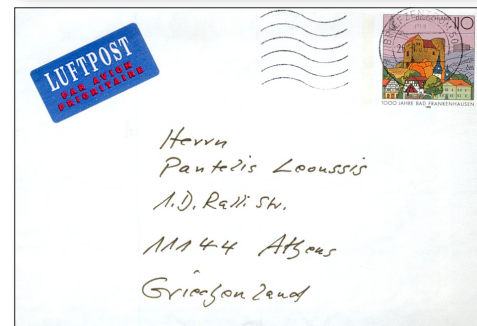 LUFTPOST
PAR AVION
PRIORITAIRE
BRIEFZENTRUM 50
DEUTSCHLAND 110
1000 JAHRE BAD FRANKENHAUSEN
Herrn
Pantelis Leoussis
1.D. Ralli Str.
11144 Athens
Griechenland